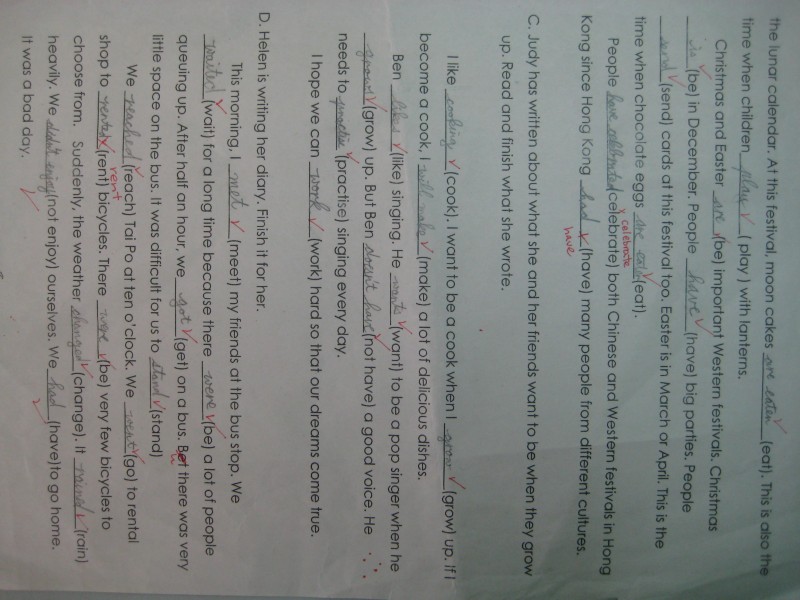 the lunar calendar. At this festival, moon cakes are eaten (eat). This is also the
time when children play (play) with lanterns.
Christmas and Easter are (be) important Western festivals. Christmas
is (be) in December. People have (have) big parties. People
send (send) cards at this festival too. Easter is in March or April. This is the
time when chocolate eggs are (eat).
People have celebrated celebrate (celebrate) both Chinese and Western festivals in Hong
Kong since Hong Kong had have (have) many people from different cultures.
C. Judy has written about what she and her friends want to be when they grow
up. Read and finish what she wrote.
I like cooking (cook). I want to be a cook when I grow (grow) up. If I
become a cook, I will make (make) a lot of delicious dishes.
Ben likes (like) singing. He wants (want) to be a pop singer when he
grows (grow) up. But Ben doesn't have (not have) a good voice. He
needs to practise (practise) singing every day.
I hope we can work (work) hard so that our dreams come true.
D. Helen is writing her diary. Finish it for her.
This morning, I met (meet) my friends at the bus stop. We
waited (wait) for a long time because there were (be) a lot of people
queuing up. After half an hour, we got (get) on a bus. But there was very
little space on the bus. It was difficult for us to stand (stand)
We reached (reach) Tai Po at ten o'clock. We went (go) to rental
shop to rented rent (rent) bicycles. There were (be) very few bicycles to
choose from. Suddenly, the weather changed (change). It rained (rain)
heavily. We didn't enjoy (not enjoy) ourselves. We had (have) to go home.
It was a bad day.